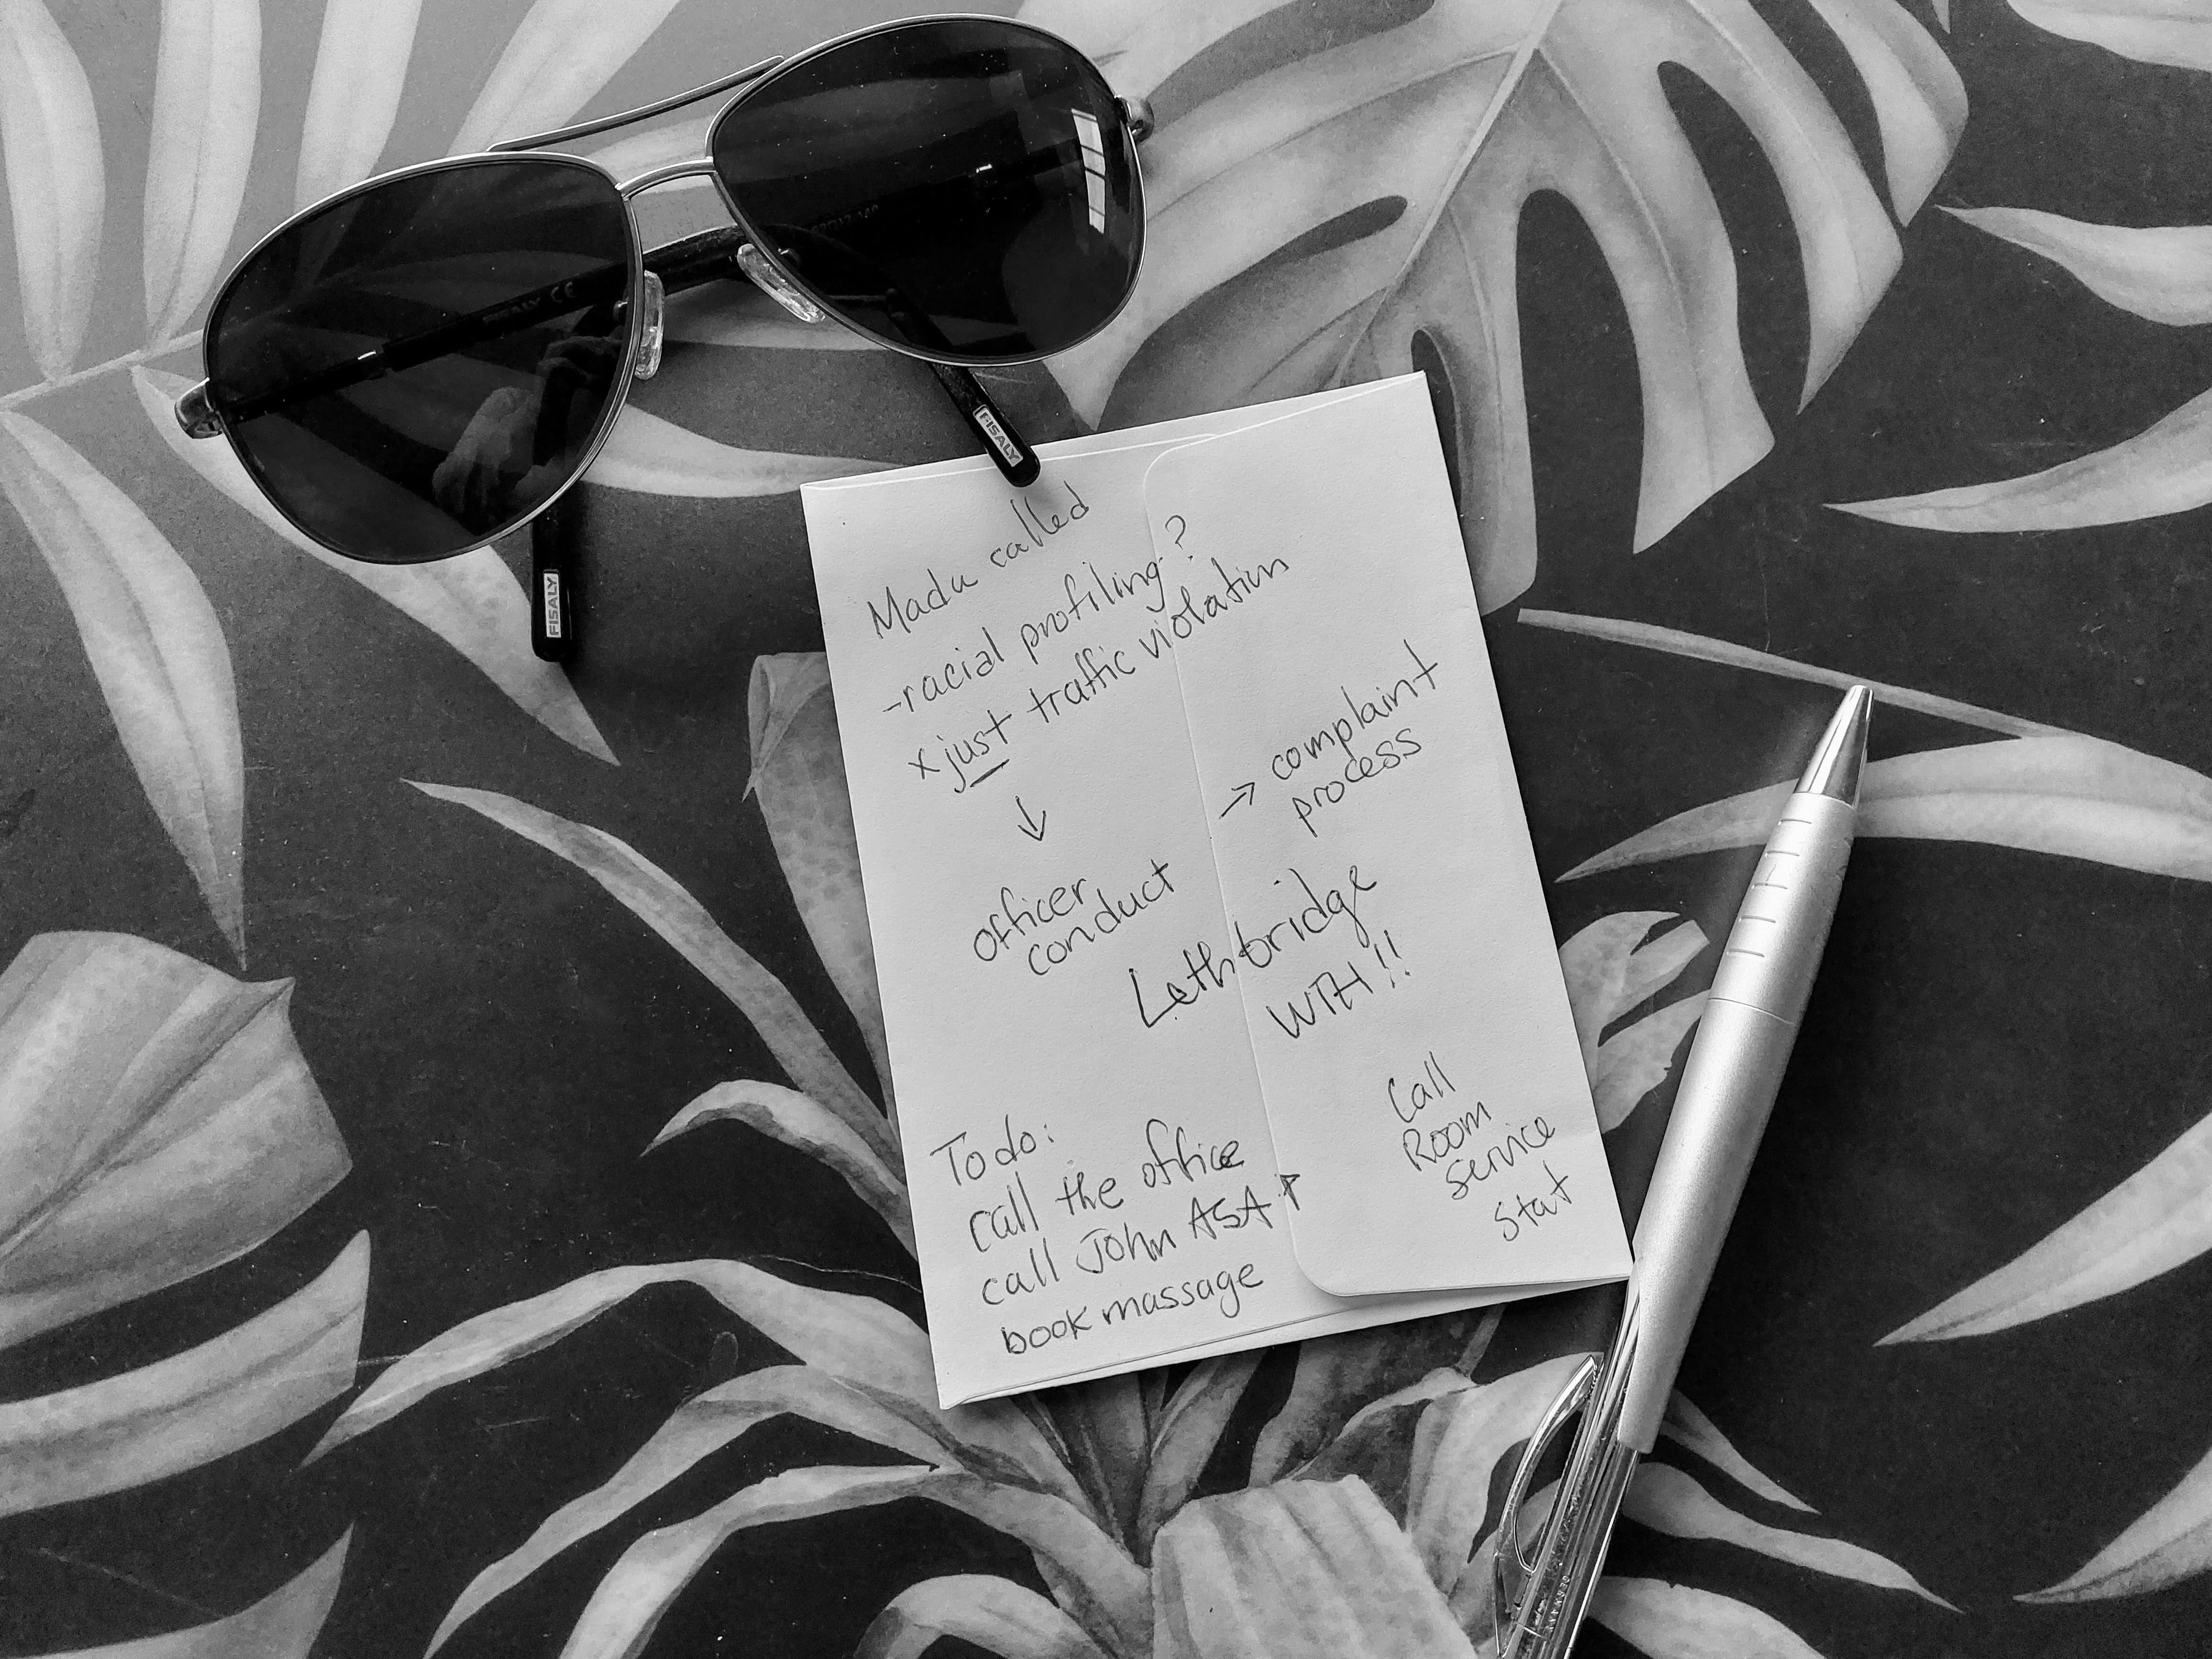 FISALY CE
FISALY
FISALY
Madu called
-racial profiling?
x just traffic violation
↓
officer
conduct
→ complaint
process
Lethbridge
WTH!!
To do:
call the office
call John ASAP
book massage
Call
Room
service
stat